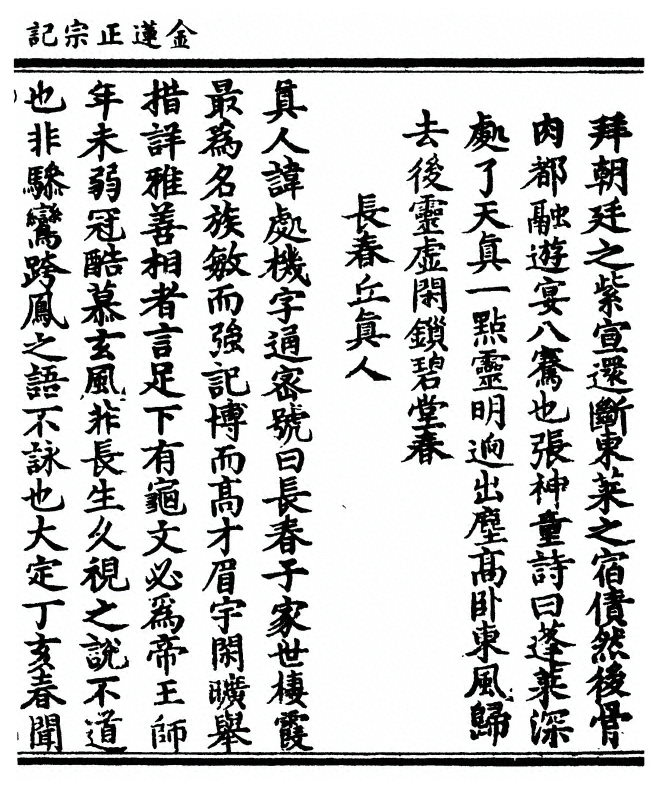 金蓮正宗記
拜朝廷之紫宣還斷東萊之宿債然後骨
肉都融遊宴八騫也張神童詩曰蓬萊深
處了天真一點靈明逈出塵高卧東風歸
去後靈虛閑鎖碧堂春
長春丘真人
真人諱處機字通密號曰長春子家世棲霞
最為名族敏而強記博而高才眉宇閑曠舉
措詳雅善相者言足下有龜文必為帝王師
年未弱冠酷慕玄風非長生久視之說不道
也非驂鸞跨鳳之語不詠也大定丁亥春聞